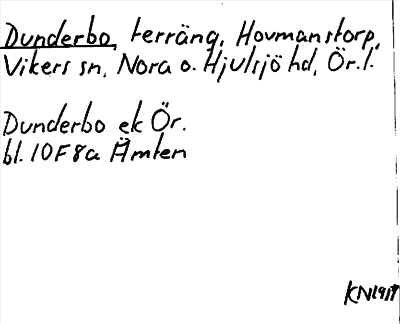 Dunderbo, terräng, Hovmanstorp,
Vikers sn, Nora o. Hjulsjö hd, Ör.l.
Dunderbo ek Ör.
bl. 10F8a Ämten